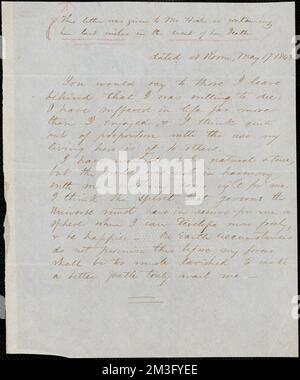 This letter was given to Mr. Hicks as containing
her last wishes in the event of her death
dated at Rome, May 17
You would say to those I leave
behind that I was willing to die.
I have suffered in life far more
than I enjoyed & I think quite
out of proportion with the use my
living here is of to others.
I have wished to be natural & true,
but the world was not in harmony
with me — nothing came right for me.
I think the spirit that governs the
Universe must have in reserve for me a
sphere where I can develope more freely,
& be happier — on Earth circumstances
do not promise this before my forces
shall be too much lavished to make
a better path truly avail me —
alamy
Image ID: 2M3FYEE
www.alamy.com